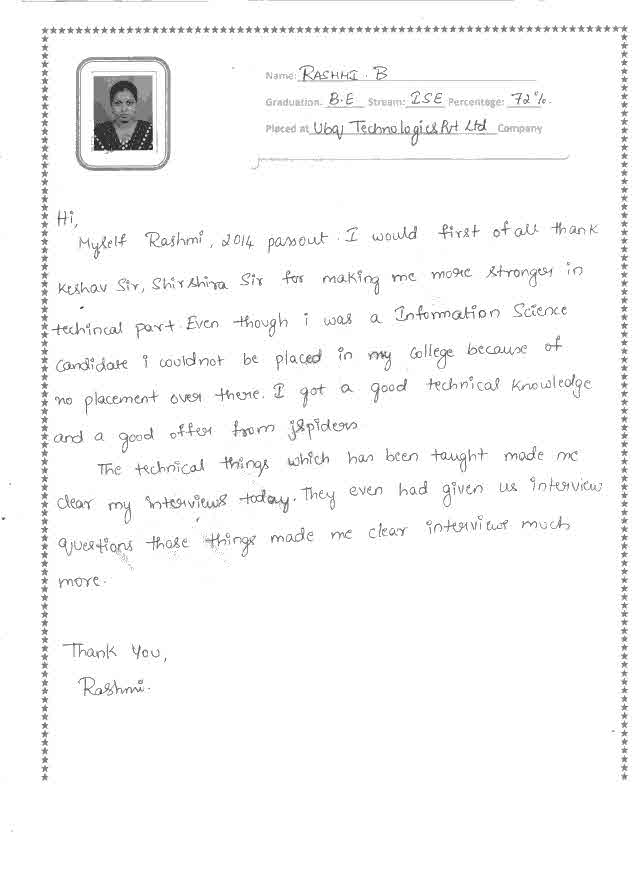 Name: RASHMI . B
Graduation. B.E Stream: ISE Percentage: 72%.
Placed at Ubqi Technologies Pvt Ltd Company
Hi,
Myself Rashmi, 2014 passout. I would first of all thank
Keshav Sir, Shirshira Sir for making me more stronger in
techincal part. Even though i was a Information Science
Candidate i couldnot be placed in my College because of
no placement over there. I got a good technical knowledge
and a good offer from jspiders
The technical things which has been taught made me
clear my interviews today. They even had given us interview
questions those things made me clear interviews much
more.
Thank You,
Rashmi.